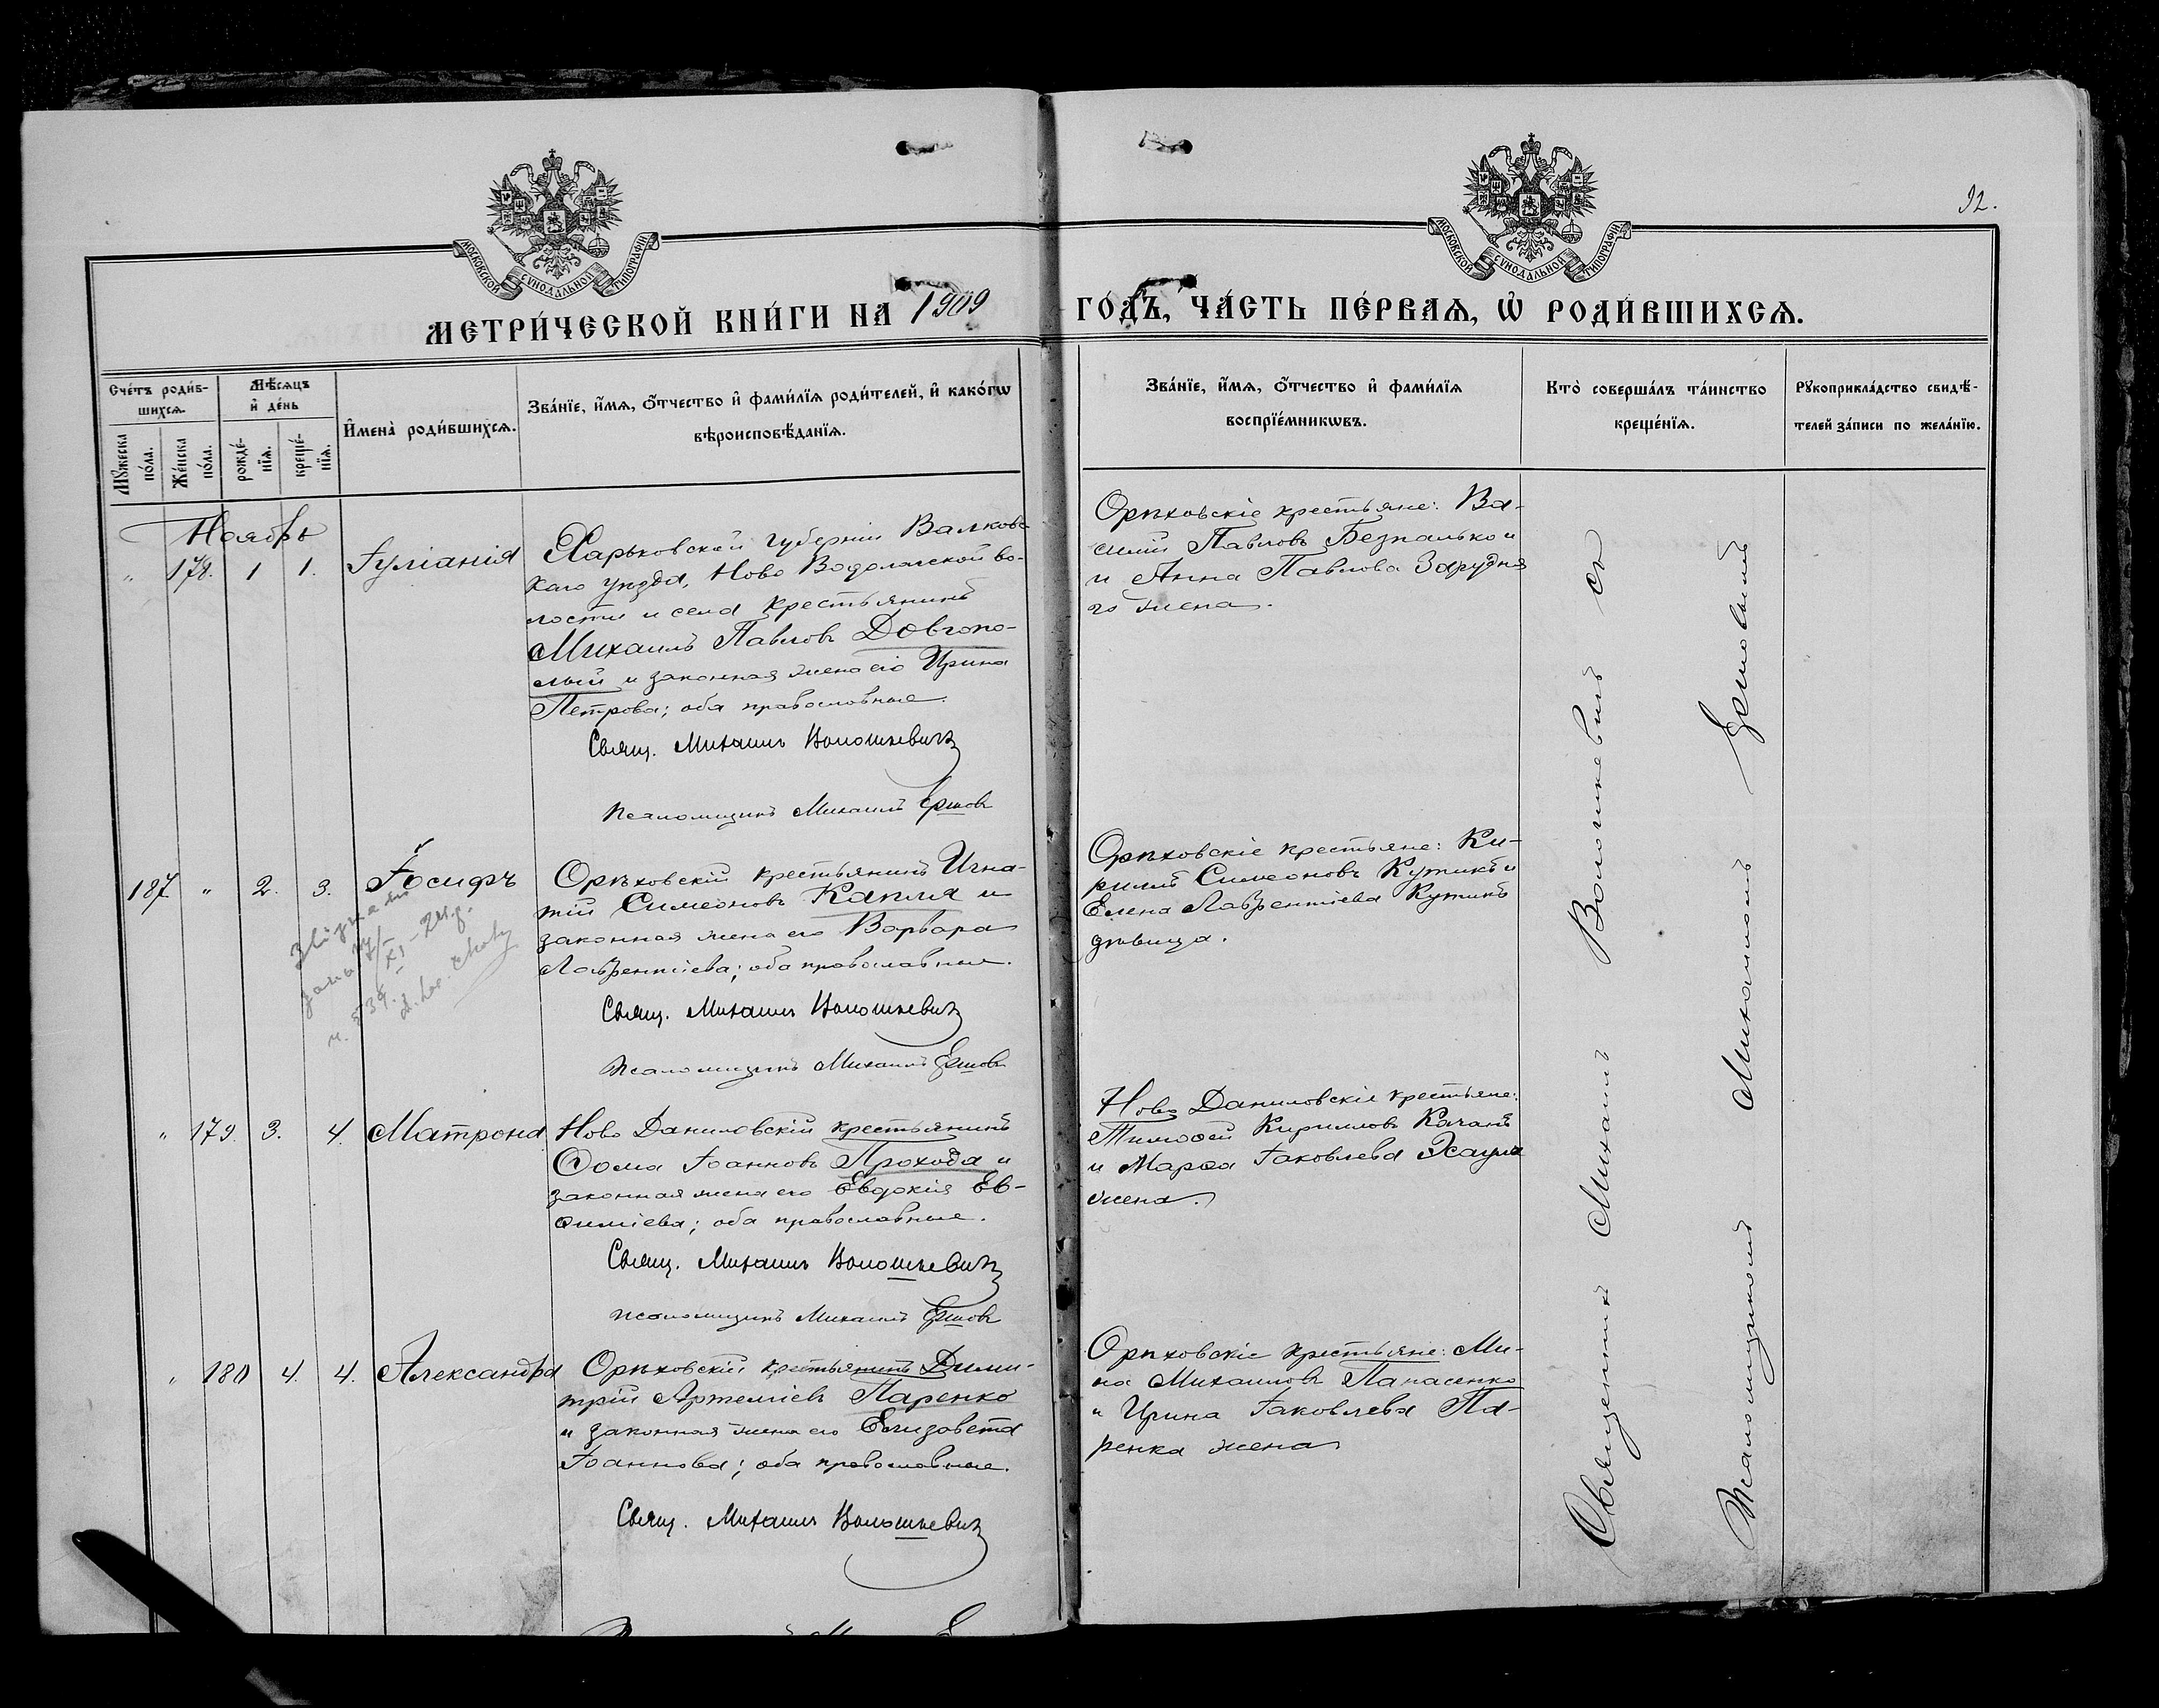 92.
МОСКОВСКОЙ СѴНОДАЛЬНОЙ ТИПОГРАФІИ
МОСКОВСКОЙ СѴНОДАЛЬНОЙ ТИПОГРАФІИ
МЕТРИ́ЧЕСКОЙ КНИ́ГИ НА 1909 ГО́ДЪ, ЧА́СТЬ ПЕ́РВАЯ, Ѡ҆ РОДИ́ВШИХСЯ.
Сче́тъ роди́в-
шихся.
Мꙋ́жеска
по́ла.
Же́нска
по́ла.
Мѣ́сяцъ
и҆ де́нь
рожде́-
нїя.
креще́-
нїя.
И҆мена̀ роди́вшихся.
Зва́нїе, и҆́мя, ѻ҆́тчество и҆ фами́лїя роди́телей, и҆ како́гѡ
вѣроисповѣ́данїя.
Зва́нїе, и҆́мя, ѻ҆́тчество и҆ фами́лїя
воспрїе́мникѡвъ.
Кто̀ соверша́лъ та́инство
креще́нїя.
Рꙋкоприкла́дство свидѣ́-
телей за́писи по жела́нїю.
Ноябрь
" 178. 1 1. Іуліанія
Харьковской губерніи Валковс-
каго уѣзда, Ново Водолажской во-
лости и села крестьянинъ
Михаилъ Павловъ Довгопо-
лый и законная жена его Ирина
Петрова; оба православные.
Свящ. Михаилъ Волошкевичъ
Псаломщикъ Михаилъ Ершовъ
Орѣховскіе крестьяне: Ва-
силій Павловъ Безпалько и
и Анна Павлова Зарудня
го жена.
187 " 2. 3. Іосифъ
Орѣховскій крестьянинъ Игна-
тій Симеоновъ Капля и
законная жена его Варвара
Лаврентіева; оба православные.
Свящ. Михаилъ Волошкевичъ
Псаломщикъ Михаилъ Ершовъ
Орѣховскіе крестьяне: Ки-
риллъ Симеоновъ Кутикъ и
Елена Лаврентіева Кутикъ
дѣвица.
" 179. 3. 4. Матрона
Ново Даниловскій крестьянинъ
Ѳома Іоанновъ Прохода и
законная жена его Евдокія Ев-
ѳиміева; оба православные.
Свящ. Михаилъ Волошкевичъ
Псаломщикъ Михаилъ Ершовъ
Ново Даниловскіе крестьяне:
Тимоѳей Кирилловъ Качанъ
и Марѳа Іаковлева Эсаула
жена.
" 180 4. 4. Александра
Орѣховскій крестьянинъ Дими-
трій Артеміевъ Паренко
и законная жена его Елизавета
Іоаннова; оба православные.
Свящ. Михаилъ Волошкевичъ
Орѣховскіе крестьяне: Ми-
на Михаиловъ Папасенко
и Ирина Іаковлева Па-
ренка жена
Священникъ Михаилъ Волошкевичъ съ
Псаломщикомъ Михаиломъ Ершовымъ